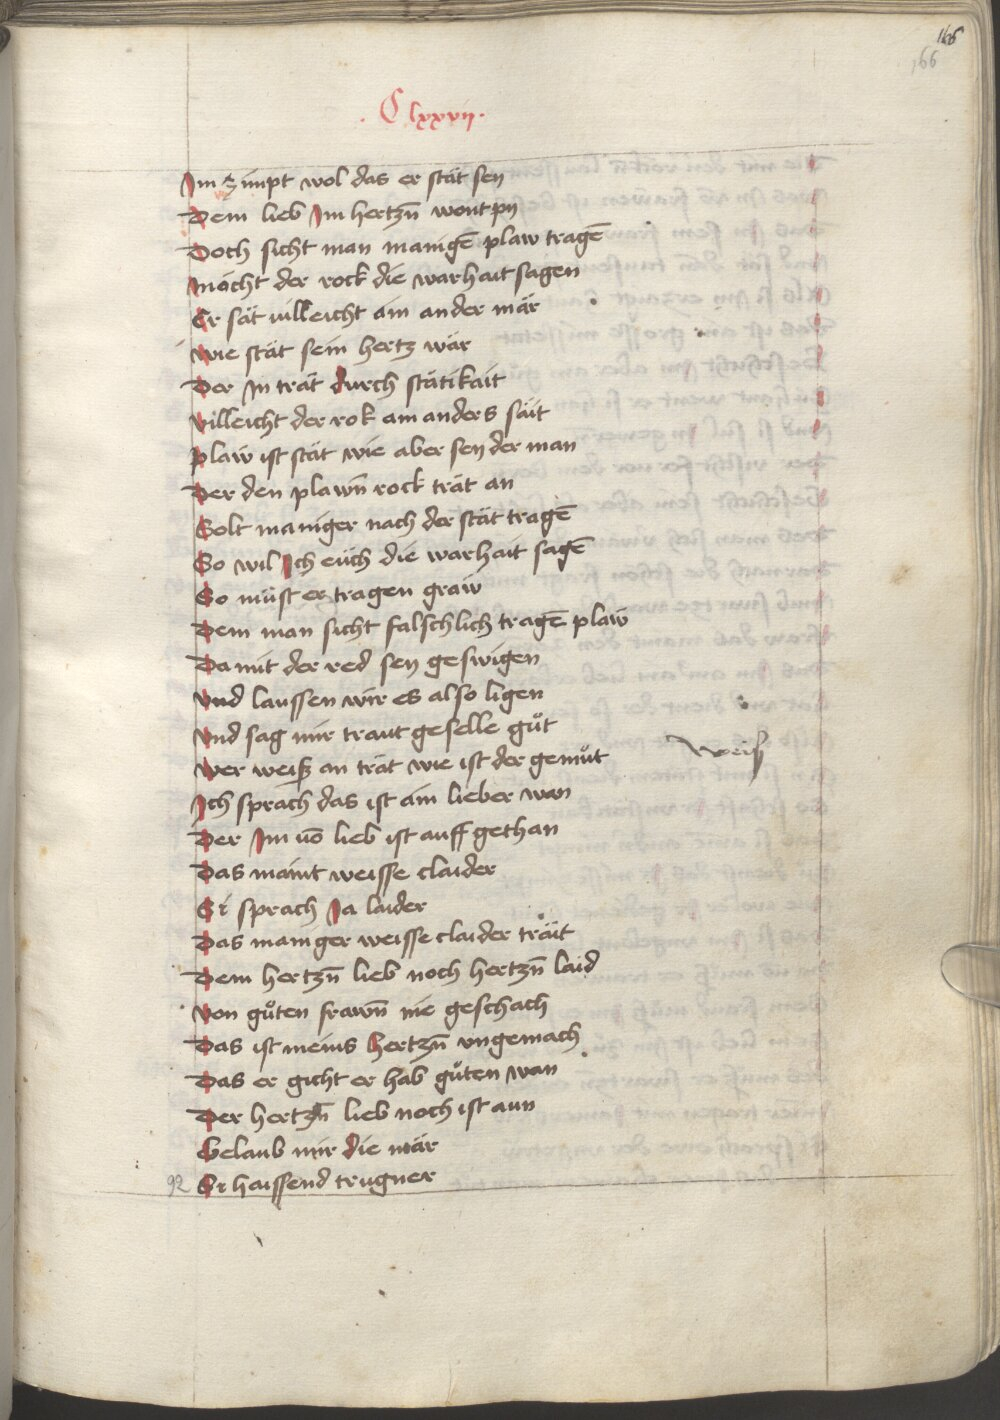 166
166
. Clxxvij .
Im zimpt wol das er stät sey
Dem lieb Im hertzn̄ wont py
Doch sicht man manigē plaw tragē
Möcht der rock die warhait sagen
Er sät villeicht ain ander mär
wie stät sein hertz wär
Der In trät durch stätikait
villeicht der rok ain anders säit
plaw ist stät wie aber sey der man
Der den plawn̄ rock trät an
Solt maniger nach der stät tragē
So wil Ich eüch die warhait sagē
So müst er tragen graw
Dem man sicht falschlich tragē plaw
Da mit der red sey geswigen
vnd laussen wir es also ligen
vnd sag mir traut geselle gůt
wer weiß an trät wie ist der gemůt
Weiß
Ich sprach das ist ain lieber wan
Der Im vō lieb ist auff gethan
Das maint weisse claider
Er sprach Ja laider
Das maniger weisse claider träit
Dem hertzn̄ lieb noch hertzn̄ laid
von gůten frawn̄ nie geschach
Das ist meins hertzn̄ vngemach
Das er gicht er hab gůten wan
Der hertzn̄ lieb noch ist aun
Gelaub mir die mär
92 Er haissend trugner